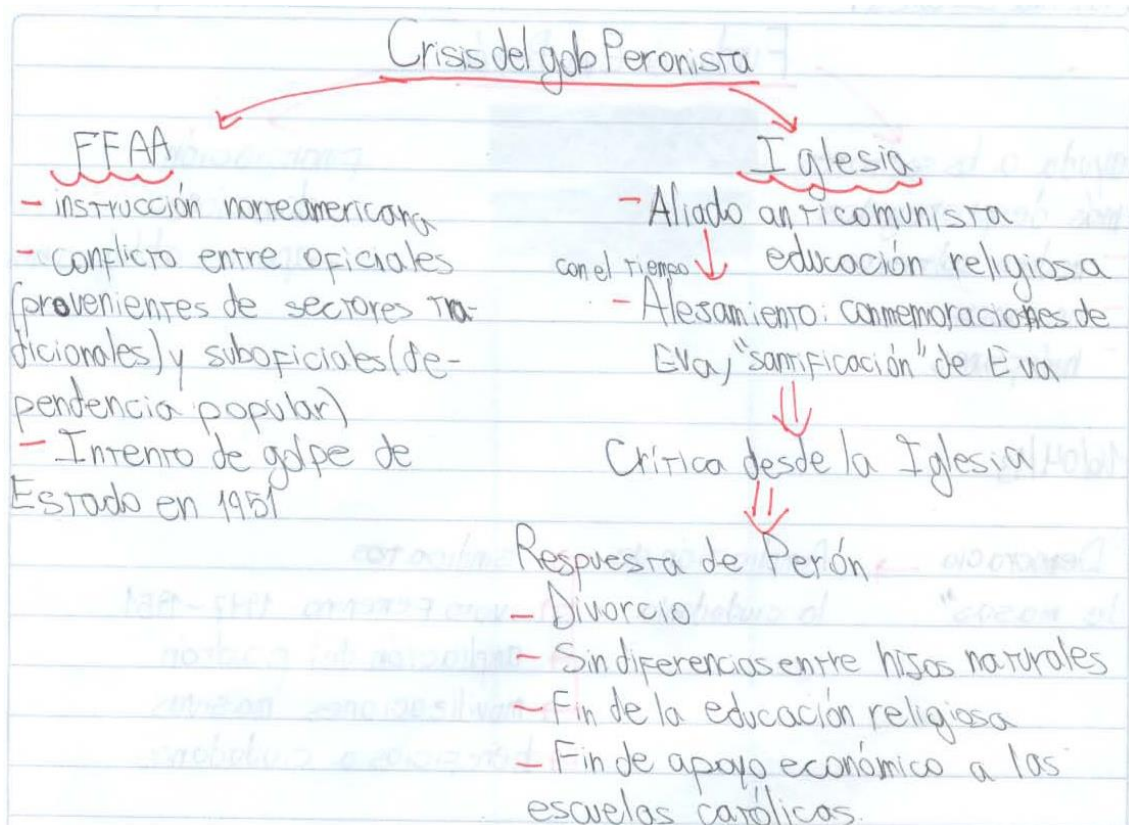 Crisis del gob Peronista
FFAA
- instrucción norteamericana
- conflicto entre oficiales
(provenientes de sectores tra-
dicionales) y suboficiales (de-
pendencia popular)
- Intento de golpe de
Estado en 1951
Iglesia
- Aliado anticomunista
educación religiosa
con el tiempo
- Alejamiento: conmemoraciones de
Eva, "santificación" de Eva
Crítica desde la Iglesia
Respuesta de Perón
- Divorcio
- Sin diferencias entre hijos naturales
- Fin de la educación religiosa
- Fin de apoyo económico a las
escuelas católicas.